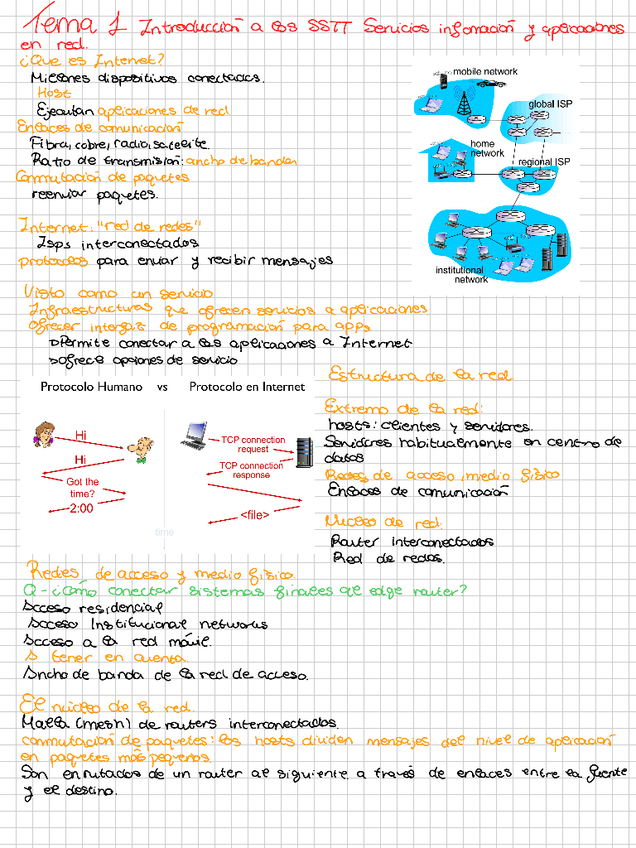 Tema 1 Introducción a los SSTT Servicios información y aplicaciones
en red.
¿Que es Internet?
Millones dispositivos conectados.
Host
Ejecutan aplicaciones de red
Enlaces de comunicación
Fibra, cobre, radio, satelite.
Ratio de transmisión: ancho de banda
Conmutación de paquetes
reenviar paquetes.
mobile network
global ISP
home
network
regional ISP
institutional
network
Internet: "red de redes"
Isps interconectados
protocolos para enviar y recibir mensajes
Visto como un servicio
Infraestructuras que ofrecen servicios a aplicaciones
Ofrecer interfaz de programación para apps
Permite conectar a las aplicaciones a Internet
ofrece opciones de servicio
Protocolo Humano vs Protocolo en Internet
Hi
Hi
Got the
time?
2:00
time
TCP connection
request
TCP connection
response
<file>
Estructura de la red
Extremo de la red:
hosts: clientes y servidores.
Servidores habitualmente en centro de
datos
Redes de acceso, medio fisico
Enlaces de comunicación
Nucleo de red:
Router interconectados
Red de redes.
Redes de acceso y medio fisico
Q-¿Cómo conectar sistemas finales al edge router?
Acceso residencial
Acceso Institucional networks
Acceso a la red móvil.
A tener en cuenta
Ancho de banda de la red de acceso.
El núcleo de la red.
Malla (mesh) de routers interconectados.
conmutación de paquetes: los hosts dividen mensajes del nivel de aplicación
en paquetes más pequeños
Son enrutados de un router al siguiente a través de enlaces entre la fuente
y el destino.